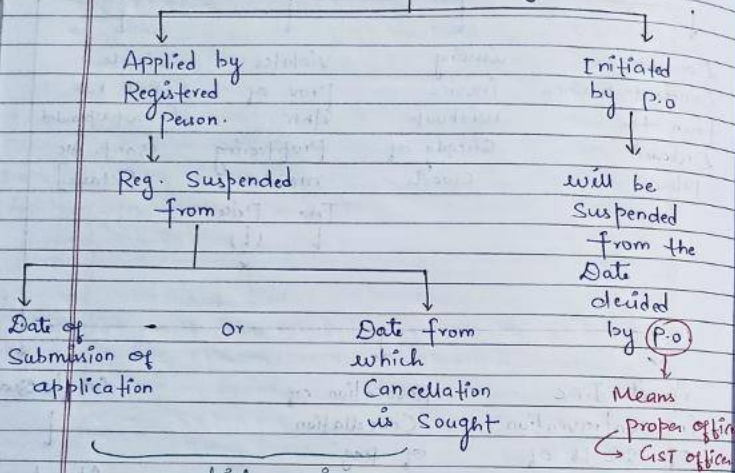 Applied by
Registered
person.
Reg. Suspended
from
Date of
Submission of
application
Or
Date from
which
Cancellation
is Sought
Initiated
by P.O
will be
Suspended
from the
Date
decided
by P.O
Means
proper offic
GST office